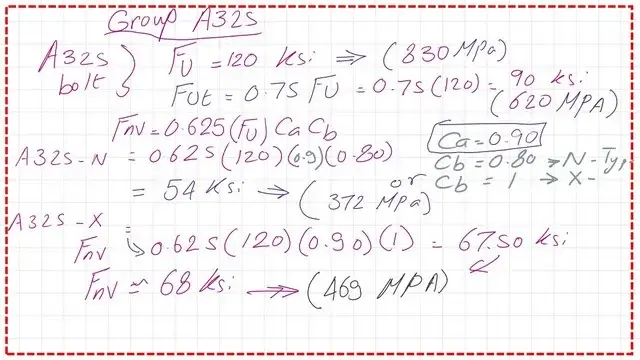 Group A325
A325 bolt } Fu = 120 ksi ⇒ (830 MPa)
Fut = 0.75 Fu = 0.75(120) = 90 ksi
(620 MPA)
Fnv = 0.625(Fu) Ca Cb
Ca = 0.90
A325-N = 0.625(120)(0.9)(0.80)
Cb = 0.80 → N-Typ
= 54 Ksi → (372 MPa)
or Cb = 1 → X-
A325-X =
Fnv ↳ 0.625(120)(0.90)(1) = 67.50 ksi
Fnv ≈ 68 ksi → (469 MPA)